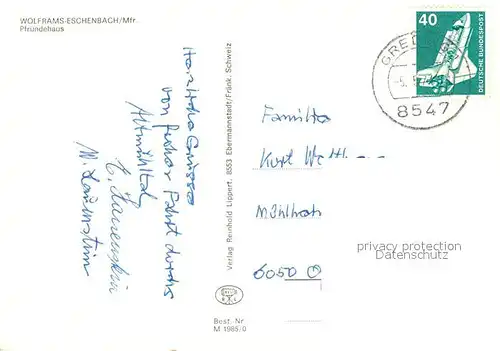 WOLFRAMS-ESCHENBACH/Mfr.
Pfründehaus
Herzliche Grüsse
von froher Fahrt durchs
Altmühltal
Verlag Reinhold Lippert, 8553 Ebermannstadt/Fränk. Schweiz
Best.-Nr.
M 1985/0
40
DEUTSCHE BUNDESPOST
GRED
8547
Familie
Kurt
6050 O
privacy protection
Datenschutz